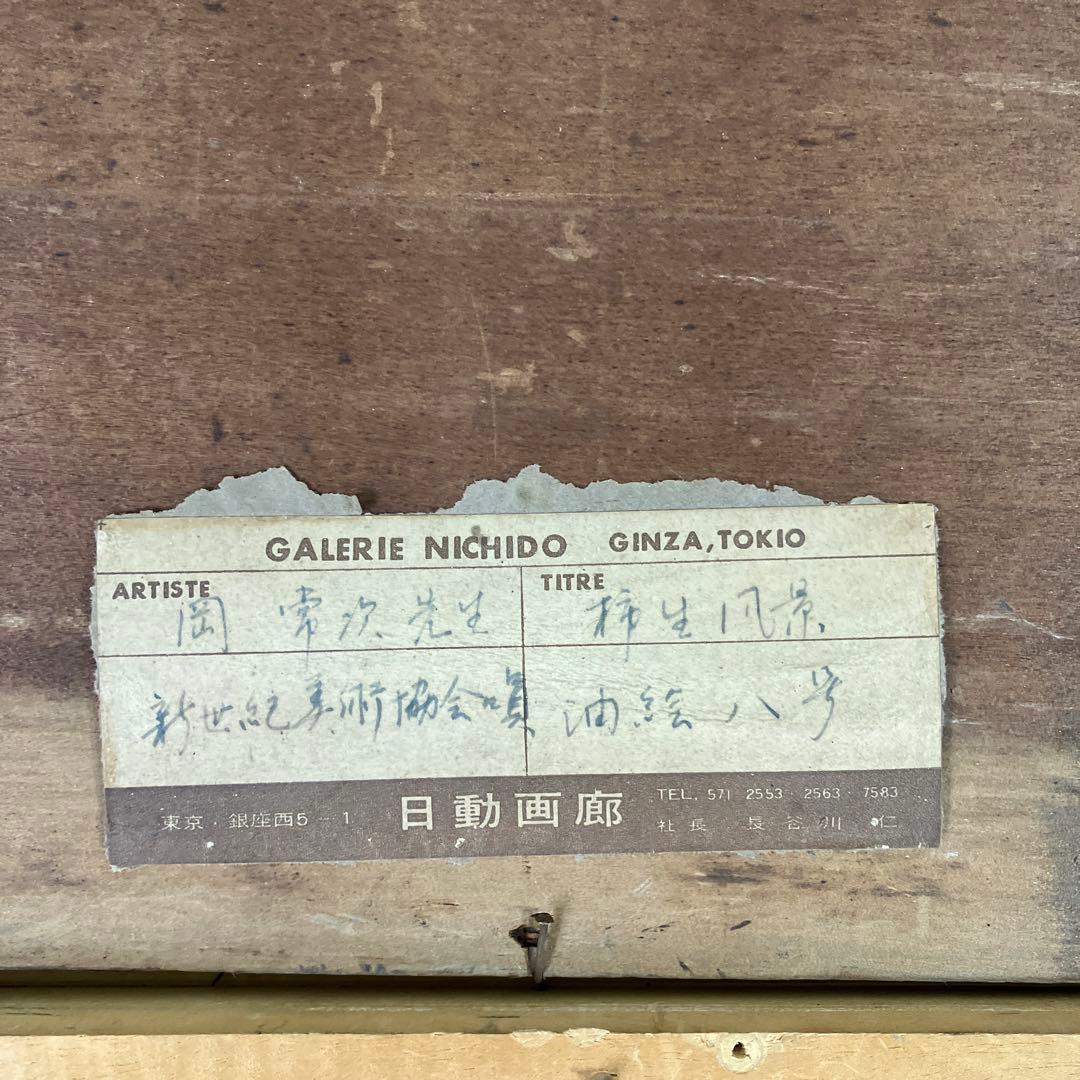 GALERIE NICHIDO GINZA, TOKIO
ARTISTE
岡 常次先生
TITRE
柿生風景
新世紀美術協会員
油絵八号
東京・銀座西5-1
日動画廊
TEL. 571 2553・2563・7583
社長 長谷川 仁